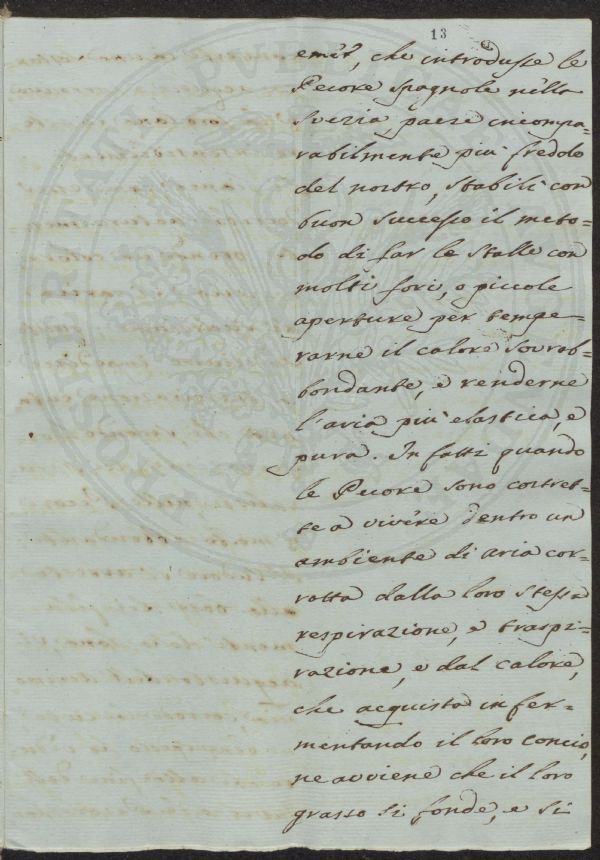 13
che introdusse le
Pecore spagnole nella
Svezia, paese incompa-
rabilmente più freddo
del nostro, stabilì con
buon successo il meto-
do di far le stalle con
molti fori, o piccole
aperture per tempe-
rarne il calore sovrab-
bondante, e renderne
l'aria più elastica, e
pura. In fatti quando
le Pecore sono costret-
te a vivere dentro un
ambiente di aria cor-
rotta dalla loro stessa
respirazione, e traspi-
razione, e dal calore,
che acquista in fer-
mentando il loro concio,
ne avviene che il loro
grasso si fonde, e si